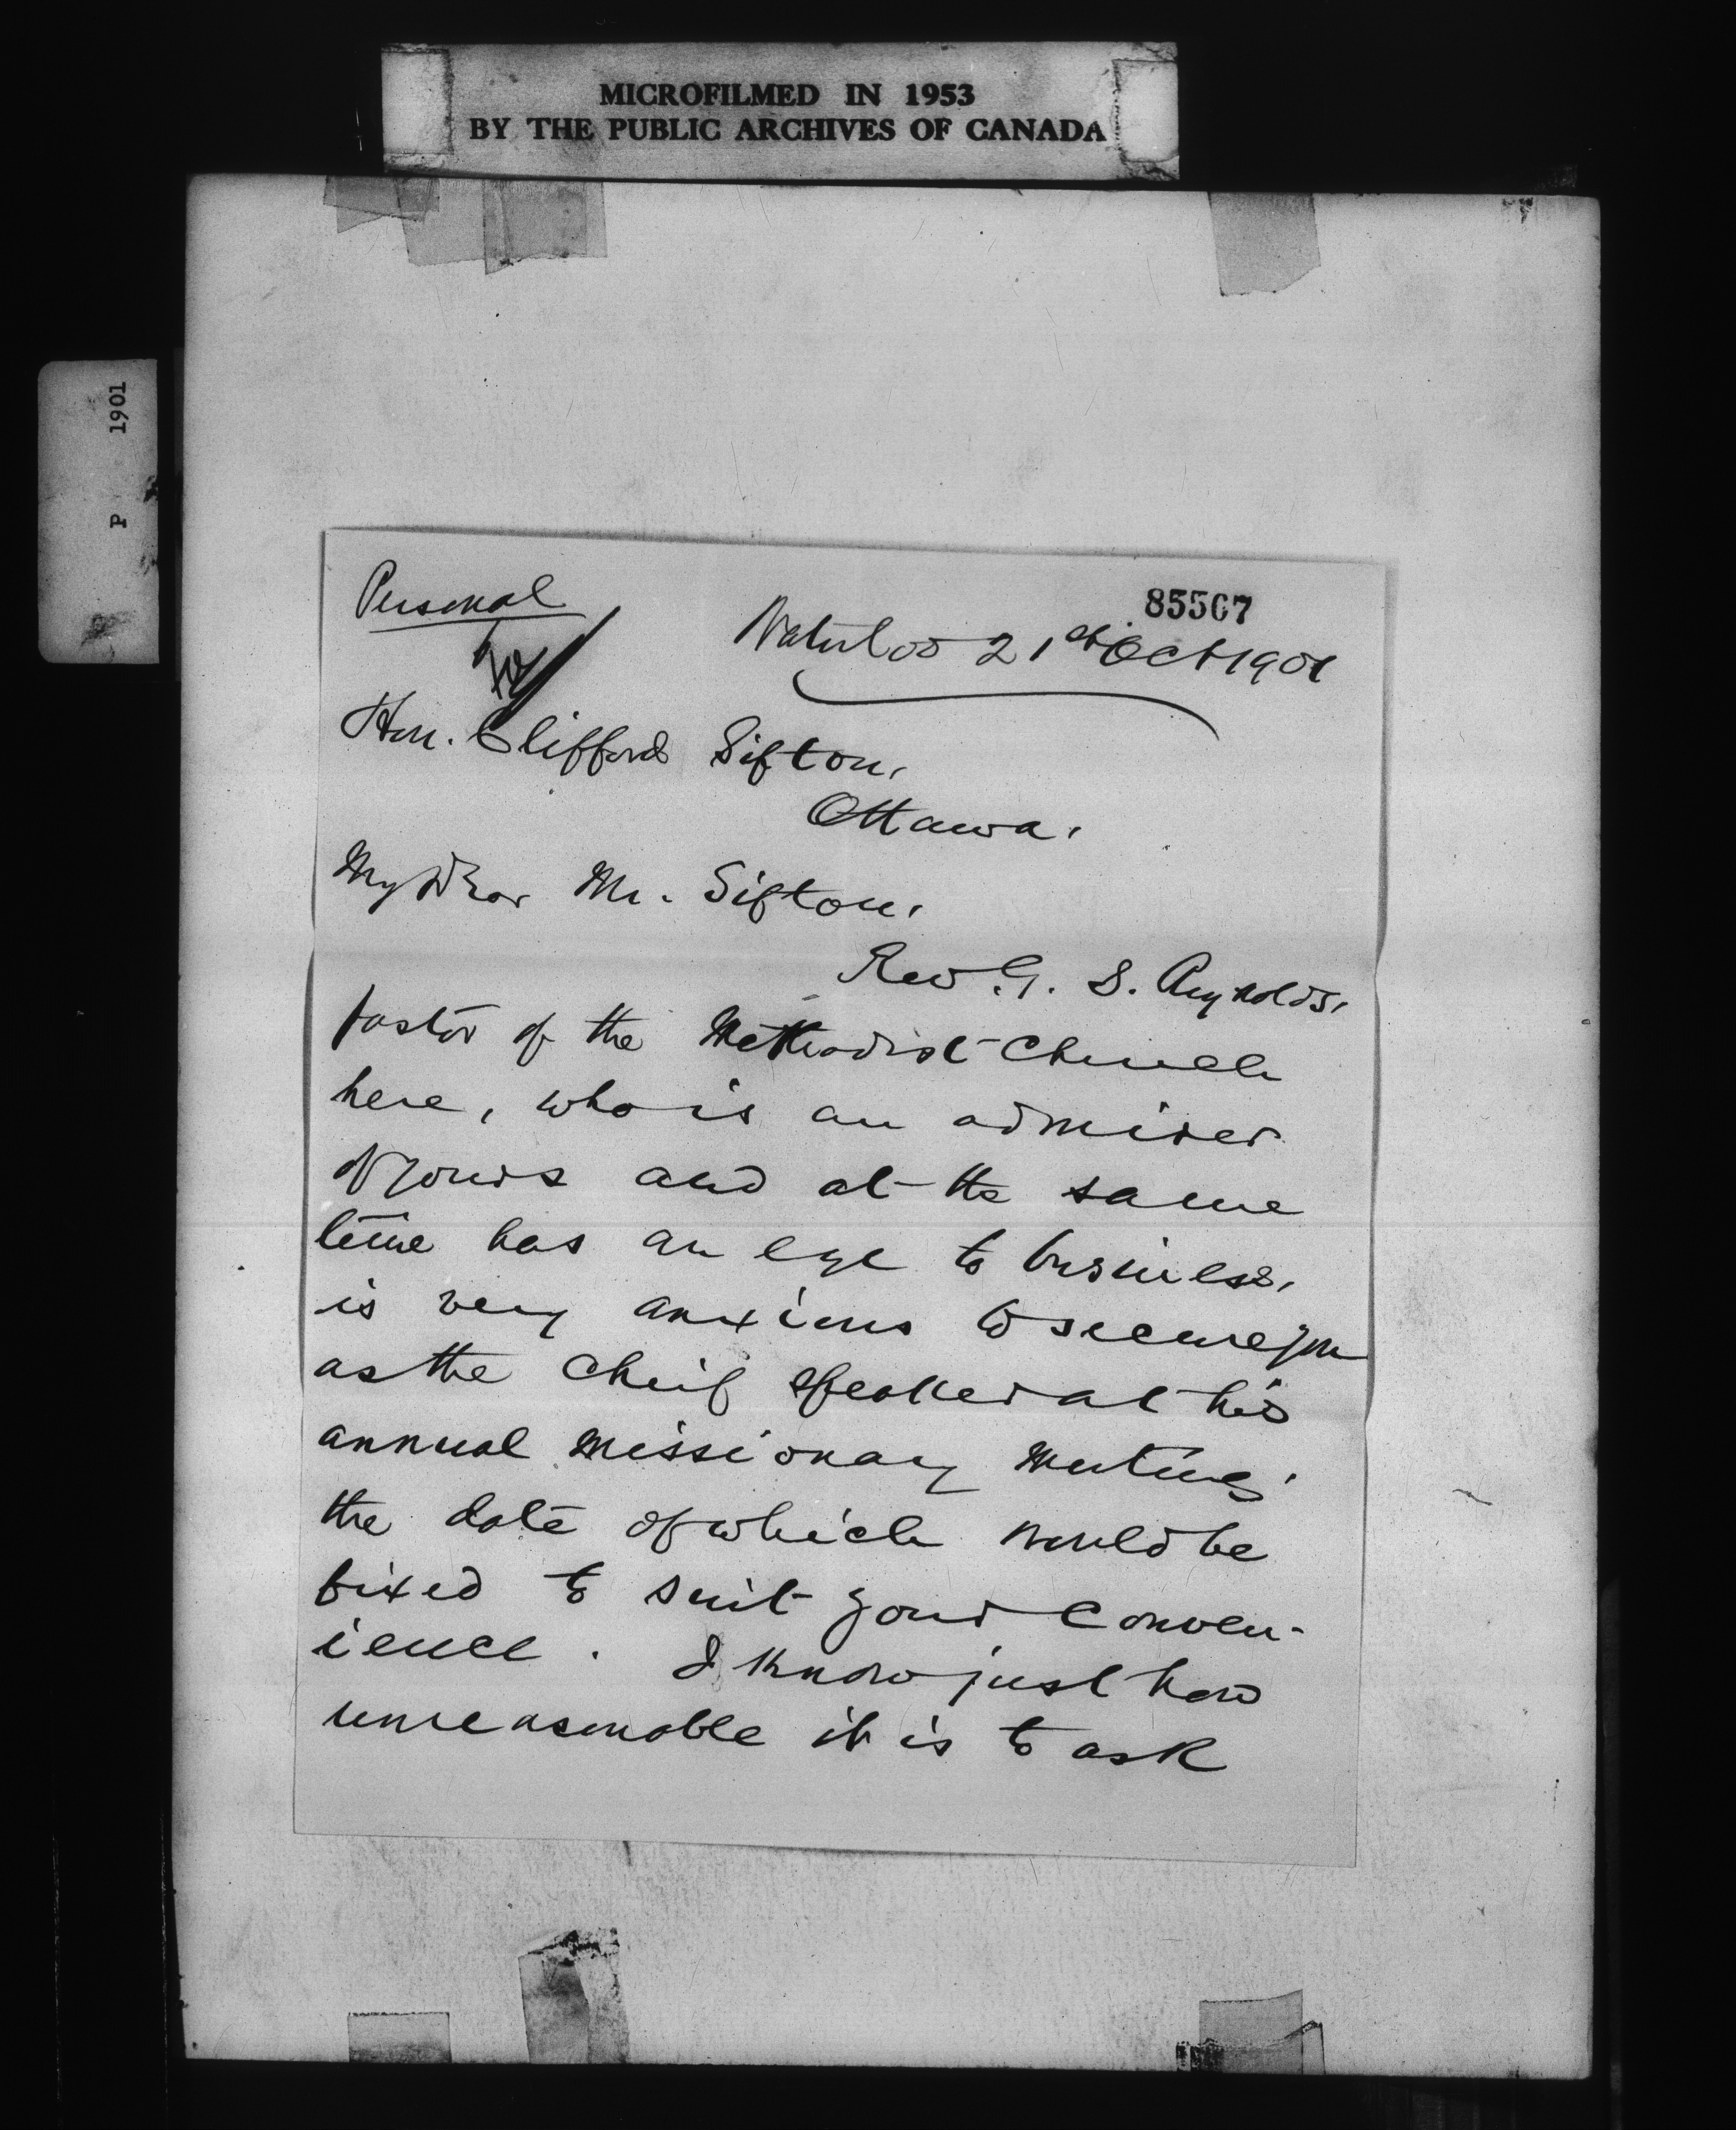 MICROFILMED IN 1953
BY THE PUBLIC ARCHIVES OF CANADA
P 1901
Personal
85507
Waterloo 21st Oct 1901
Hon. Clifford Sifton,
Ottawa,
My Dear Mr. Sifton,
Rev. G. S. Reynolds,
pastor of the Methodist Church
here, who is an admirer
of yours and at the same
time has an eye to business,
is very anxious to secure you
as the Cheif speaker at his
annual Missionary Meeting,
the date of which would be
fixed to suit your conven-
ience. I know just how
unreasonable it is to ask